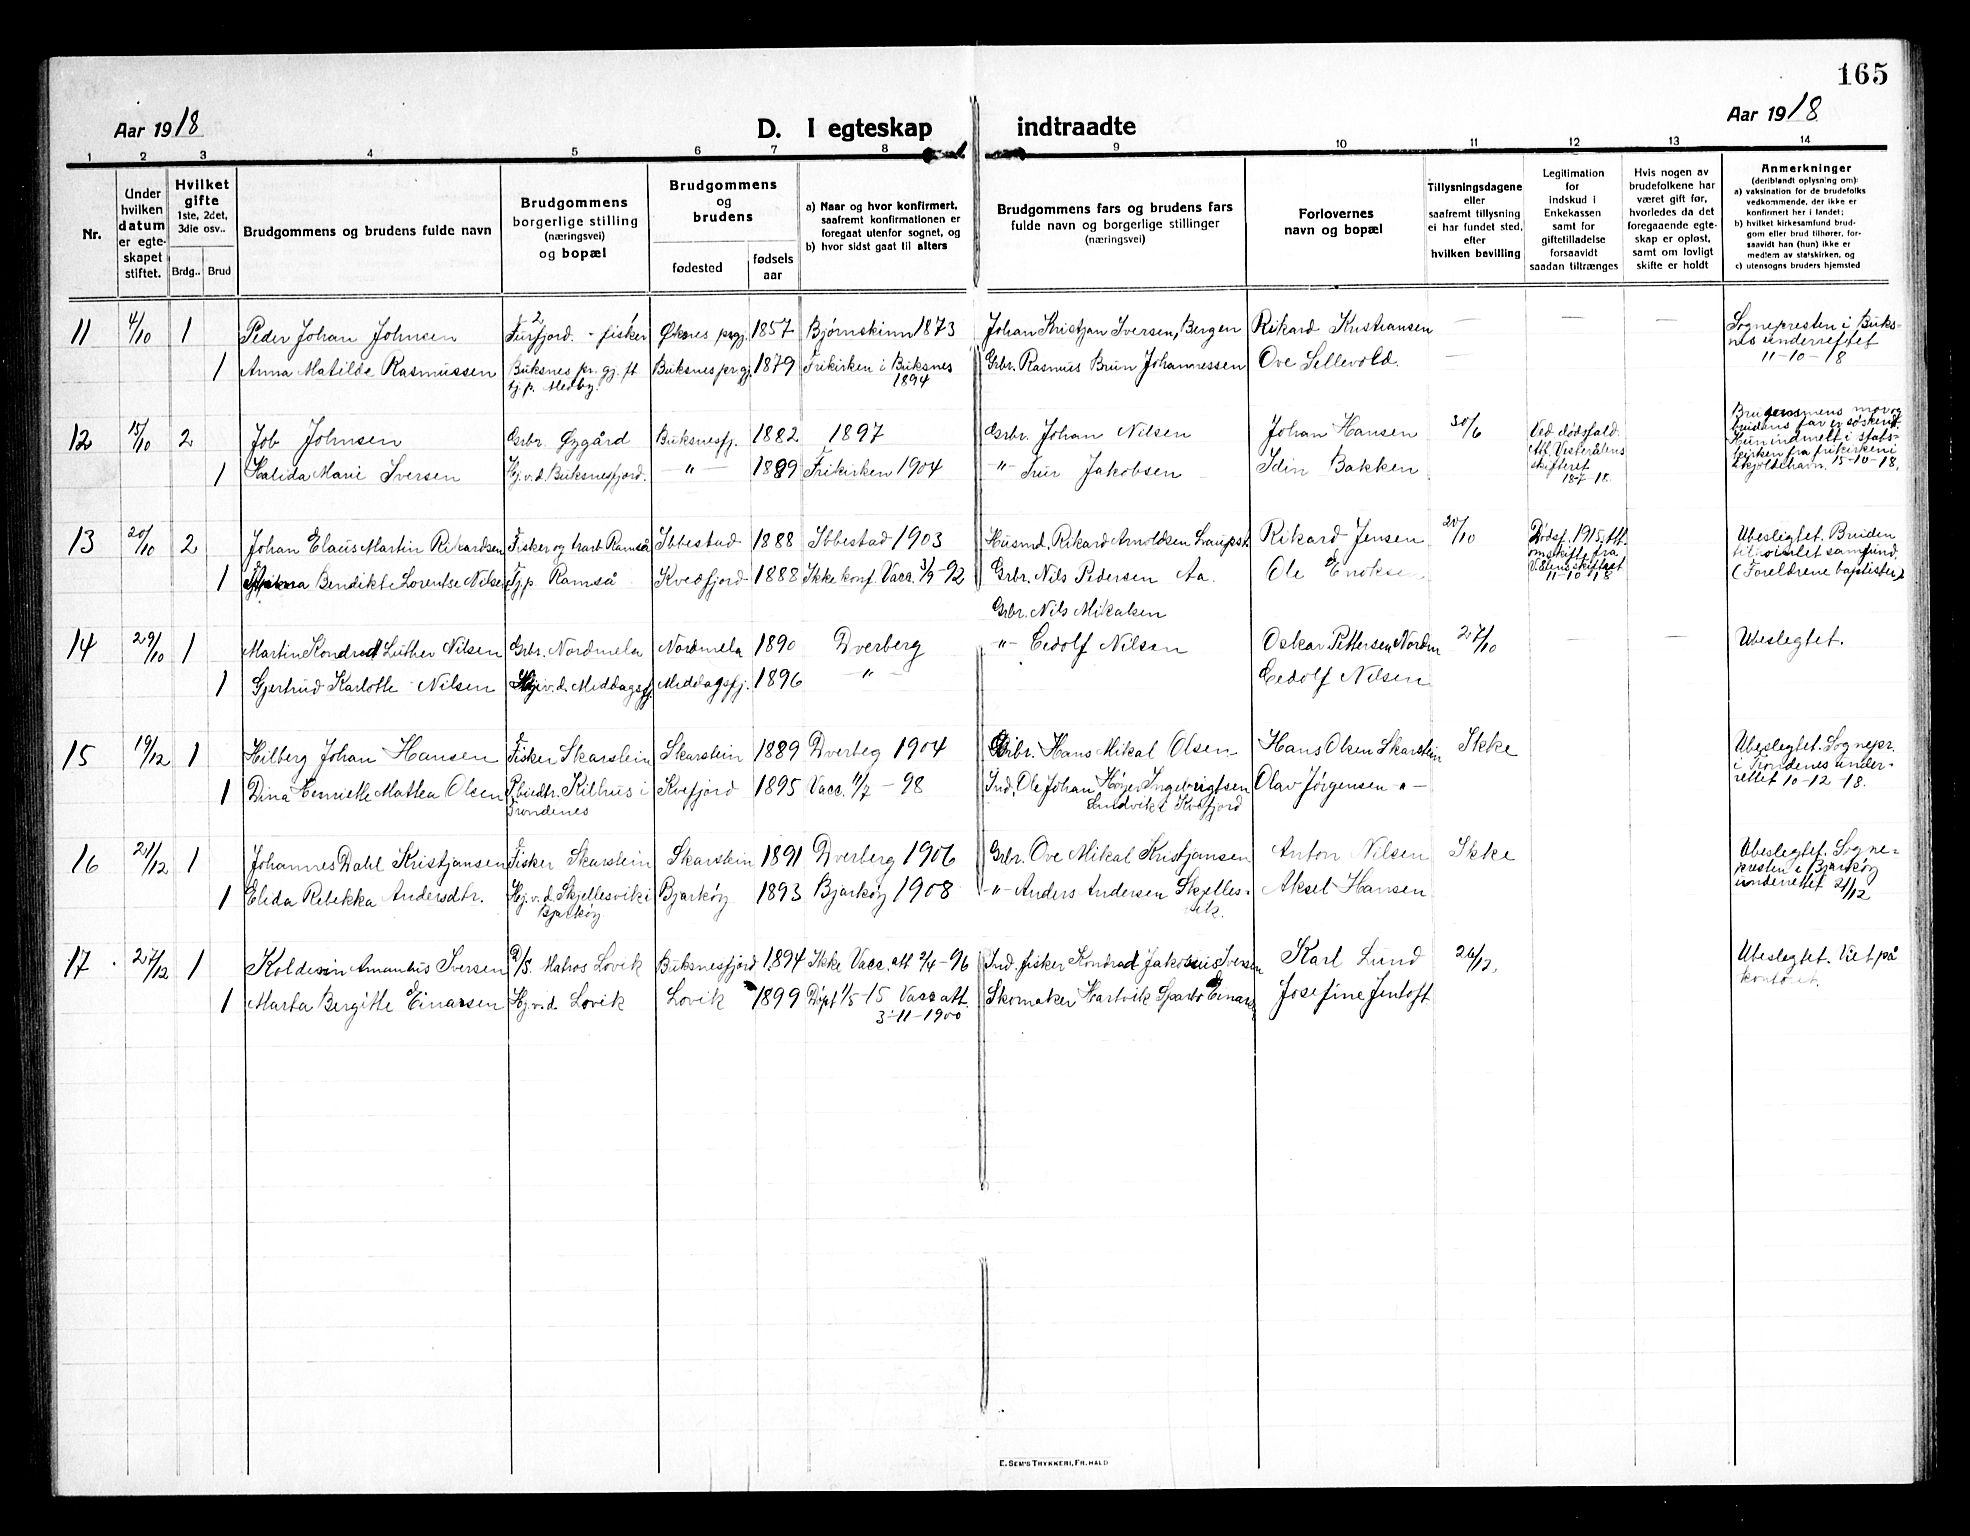 165
Aar 1918 D. I egteskap indtraadte Aar 1918
1 2 3 4 5 6 7 8 9 10 11 12 13 14
Nr.
Under hvilken datum er egteskapet stiftet.
Hvilket gifte 1ste, 2det, 3die osv..
Brdg.. Brud
Brudgommens og brudens fulde navn
Brudgommens borgerlige stilling (næringsvei) og bopæl
Brudgommens og brudens
fødested
fødselsaar
a) Naar og hvor konfirmert, saafremt konfirmationen er foregaat utenfor sognet, og
b) hvor sidst gaat til alters
Brudgommens fars og brudens fars fulde navn og borgerlige stillinger (næringsvei)
Forlovernes navn og bopæl
Tillysningsdagene eller saafremt tillysning ei har fundet sted, efter hvilken bevilling
Legitimation for indskud i Enkekassen samt for giftetilladelse forsaavidt saadan tiltrænges
Hvis nogen av brudefolkene har været gift før, hvorledes da det foregaaende egteskap er opløst, samt om lovligt skifte er holdt
Anmerkninger (deriblandt oplysning om:
a) vaksination for de brudefolks vedkommende, der ikke er konfirmert her i landet;
b) hvilket kirkesamfund brudgom eller brud tilhører, forsaavidt han (hun) ikke er medlem av statskirken, og
c) utensogns bruders hjemsted
11 4/10 1 Peder Johan Johnsen Furfjord. - fisker Øksnes prgj. 1857 Bjørnskinn 1873 Johan Kristjan Iversen, Bergen Rikard Kristiansen — — — Sognepresten i Buksnes underrettet 11-10-18
1 Anna Matilde Rasmussen Buksnes pr. gj. ft tj. p. Medby. Buksnes prgj. 1879 Frikirken i Buksnes 1894 Grbr. Rasmus Brun Johannessen Ove Sellevold. —
12 15/10 2 Job Johnsen Grbr. Øygård Buksnesfj. 1882 1897 Grbr. Johan Nilsen Johan Hansen 30/6 Ved dødsfald. Att. Vesterålens skifteret 18-7-18. Brudgommens mor og brudens far er søskend. Hun indmelt i statskirken fra frikirken i Skjoldehavn. 15-10-18.
1 Halida Marie Iversen Hj. v. d. Buksnesfjord. -"- 1889 Frikirken 1904 "- Iver Jakobsen Idin Bakken
13 20/10 2 Johan Elaus Martin Rikardsen Fisker og ... Ramså Ibbestad 1888 Ibbestad 1903 Husmd. Rikard Arnoldsen Laupst. Rikard Jensen 20/10 Dødsf. 1915. Att. om skifte fra V.ålens skifteret 11-10-18 Ubeslegtet. Bruden tilhører intet samfund. (Foreldrene baptister)
1 Bendikte Lorentse Nilsen Tj. p. Ramså Kvedfjord 1888 Ikke konf. Vacc. 3/9-92 Grbr. Nils Pedersen Aa. Ole Enoksen
Grbr. Nils Mikalsen
14 29/10 1 Martin Kondrad Luther Nilsen Grbr. Nordmela Nordmela 1890 Dverberg "- Eedolf Nilsen Oskar Pettersen Nordm 27/10 — — Ubeslegtet.
1 Gjertrud Karlotte Nilsen Hj. v. d. Middagsfj. Middagsfj. 1896 -"- Eedolf Nilsen
15 19/12 1 Hilberg Johan Hansen Fisker Skarstein Skarstein 1889 Dverbeg 1904 Grbr. Hans Mikal Olsen Hans Olsen Skarstein Ikke Ubeslegtet. Sognepr. i Trondenes underrettet 10-12-18.
1 Dina Henriette Mattea Olsen Kilhus i Trondenes Kvefjord 1895 Vacc. 11/7 - 98 Ind. Ole Johan Høyer Ingebrigtsen Sundvik i Kvefjord Olav Jørgensen -"-
16 21/12 1 Johannes Dahl Kristjansen Fisker Skarstein Skarstein 1891 Dverberg 1906 Grbr. Ove Mikal Kristjansen Anton Nilsen Ikke Ubeslegtet. Sognepresten i Bjarkøy underrettet 21/12
1 Elida Rebekka Andersdtr. Hj. v. d. Skjellesvik i Bjarkøy Bjarkøy 1893 Bjarkøy 1908 "- Anders Andersen Skjellesvik. Aksel Hansen
17 27/12 1 Koldevin Amandus Iversen D/S. Matros Lovik Buksnesfjord 1894 Ikke Vacc. att 2/4-96 Ind. fisker Kondrad Jakobsen Iversen Karl Lund 26/12. Ubeslegtet. Viet på kontoret.
1 Marta Bergitte Einarsen Hj. v. d. Lovik Lovik 1899 Døpt 1/5-15 Vacc att. 3-11-1900 Skomaker Hartvik Einarsen Josefine Jentoft
E. SEM'S TRYKKERI, FR.HALD